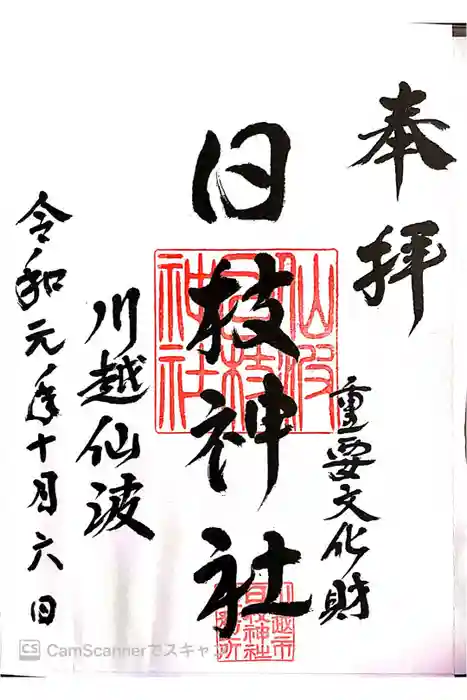 奉拝
重要文化財
日枝神社
川越仙波
令和元年十月六日
仙波
日枝
神社
川越市
日枝神社
CS CamScannerでスキャン